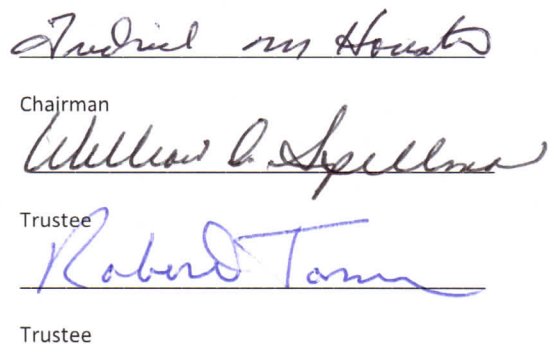 M Houston
Chairman
William A. Spellman
Trustee
Robert
Trustee